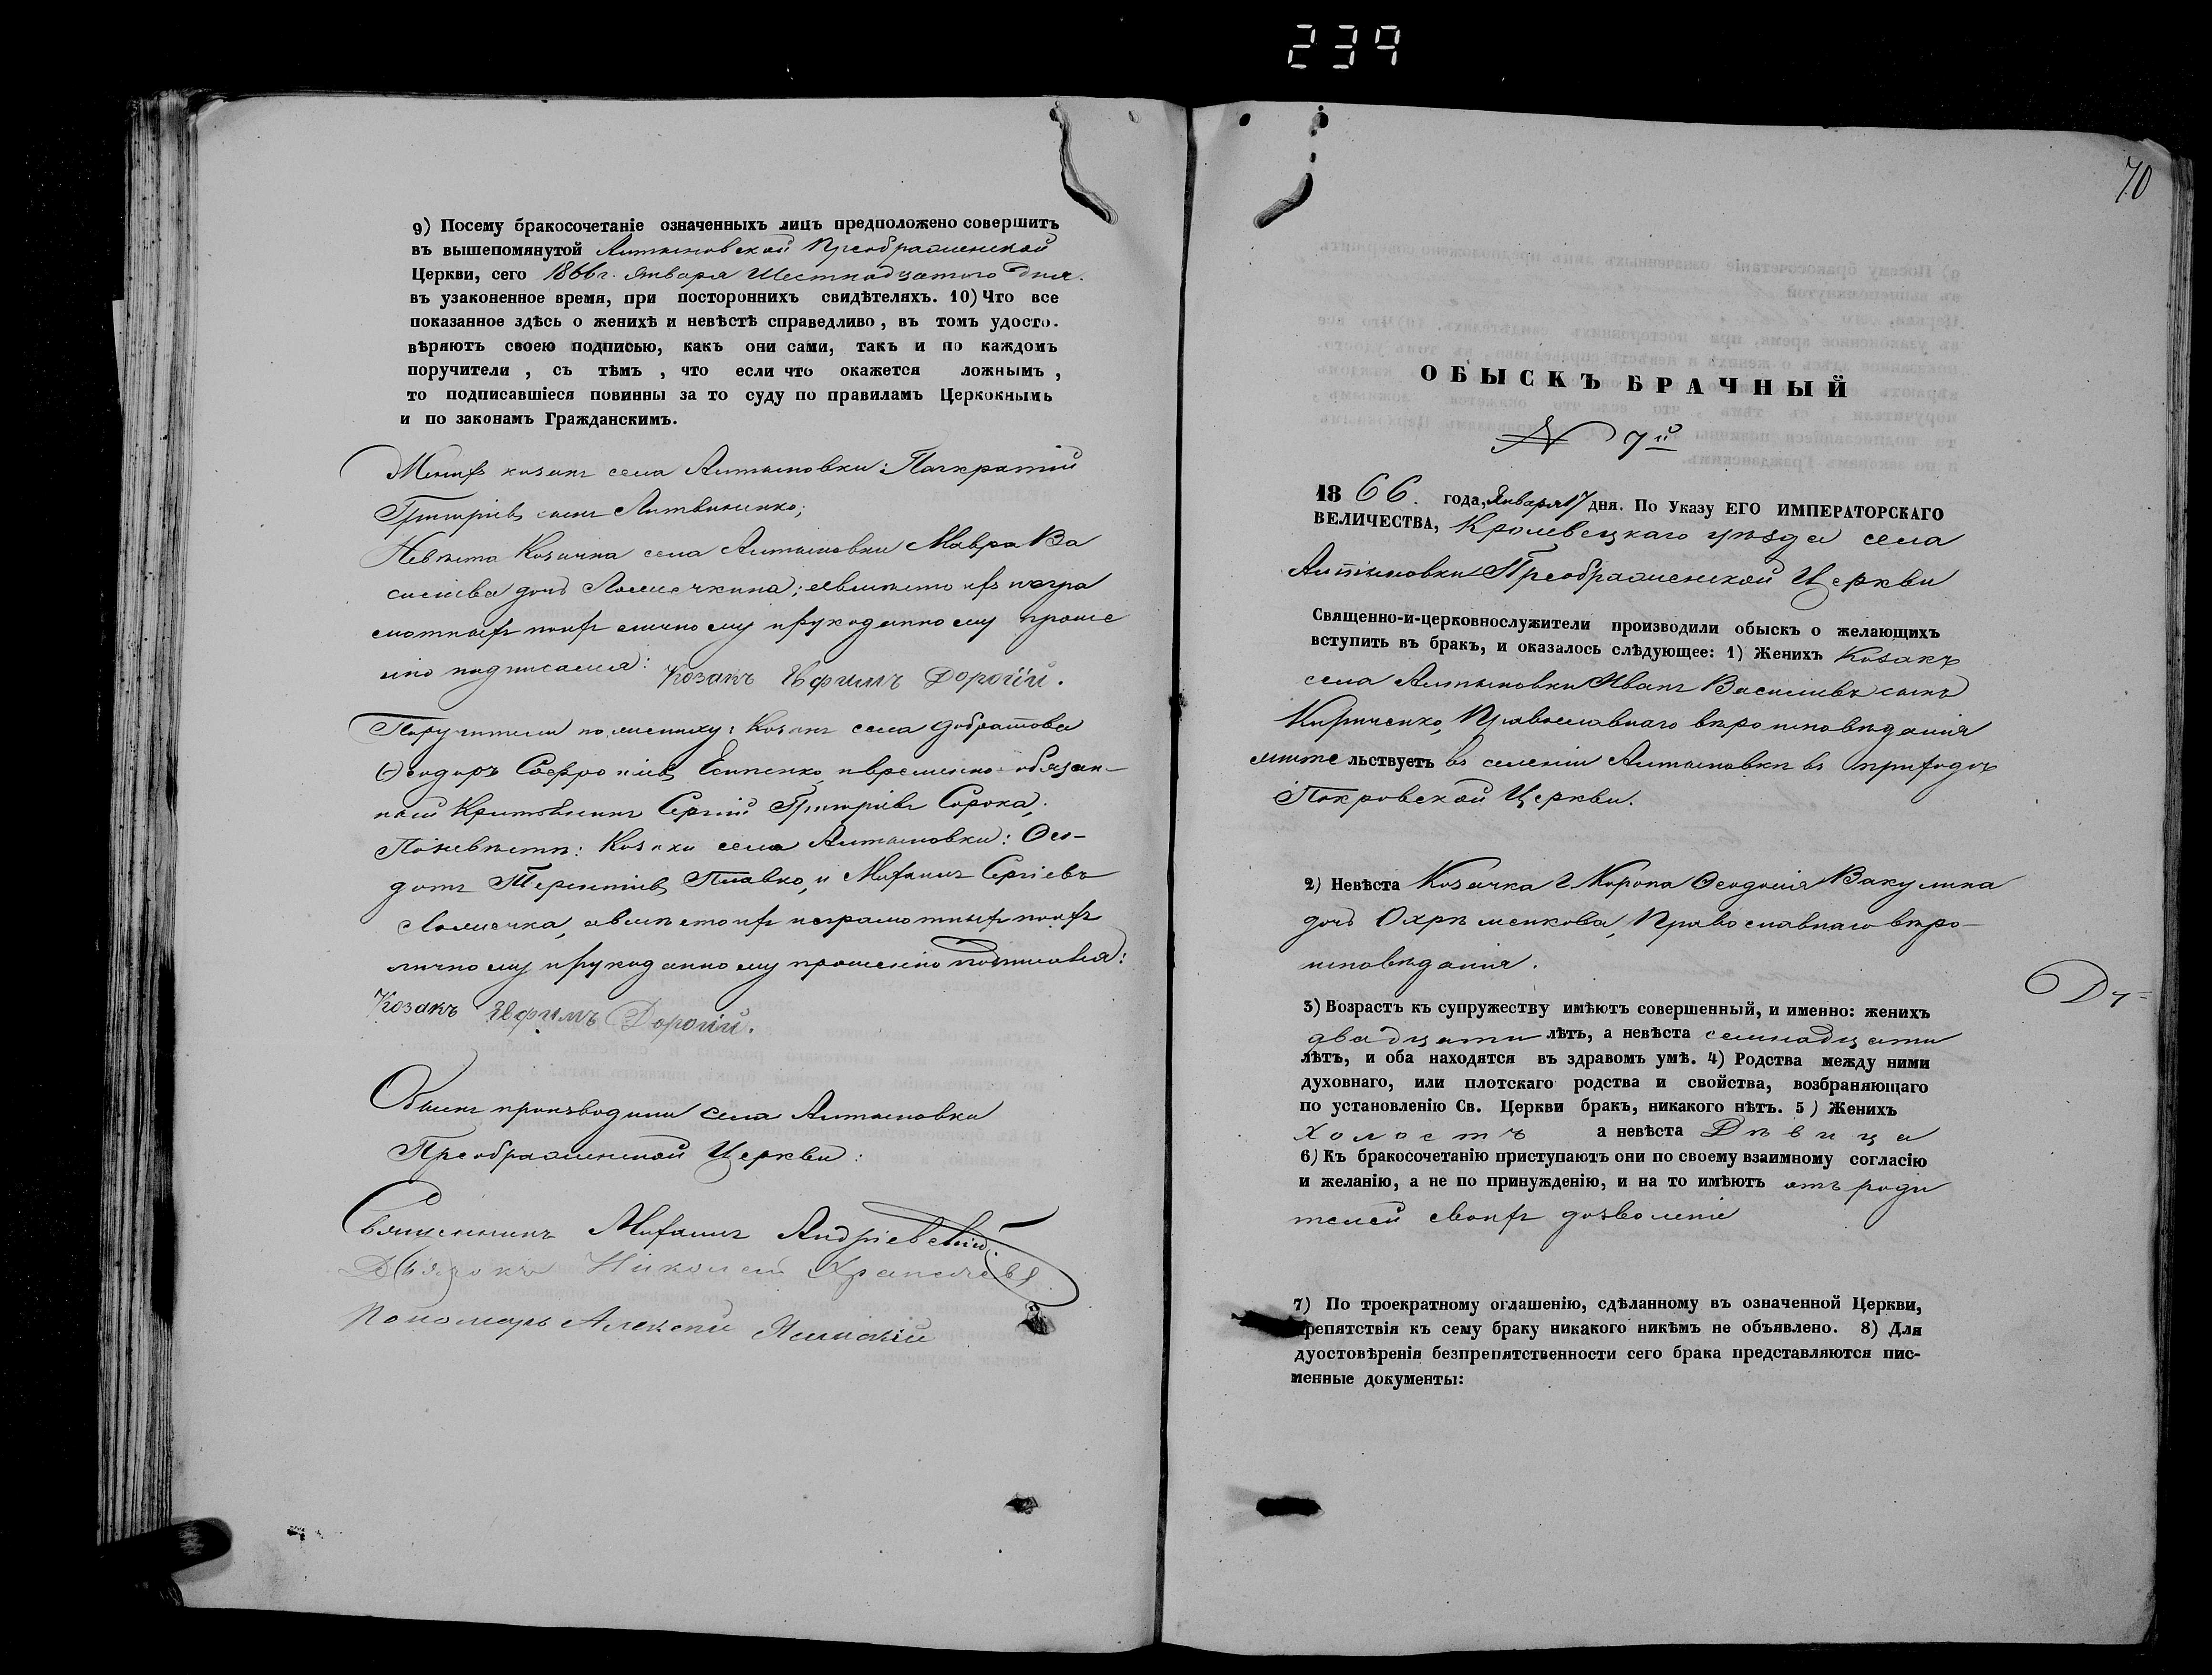 239
9) Посему бракосочетаніе означенныхъ лицъ предположено совершить
въ вышепомянутой Алтыновской Преображенской
Церкви, сего 1866 г. Января Шестнадцатого дня.
въ узаконенное время, при постороннихъ свидѣтеляхъ. 10) Что все
показанное здѣсь о женихѣ и невѣстѣ справедливо, въ томъ удосто.
вѣряютъ своею подписью, какъ они сами, такъ и по каждомъ
поручители, съ тѣмъ, что если что окажется ложнымъ,
то подписавшіеся повинны за то суду по правиламъ Церкокнымъ
и по законамъ Гражданскимъ.
Женихъ козакъ села Алтыновки: Панкратій
Григоріевъ сынъ Литвиненко;
Невѣста Козачка села Алтыновки Мавра Ва
сильева дочь Ломечкина; авмѣсто ихъ негра
мотныхъ поихъ личному ирукоданному проше
нію подписался: Козакъ Ефимъ Дорогій.
Поручители по жениху: Козакъ села Добротова
Ѳеодоръ Софроніевъ Есипенко, ивременно-обязан-
ный Крестьянинъ Сергій Григоріевъ Сорока;
Поневѣстѣ: Козаки села Алтыновки: Ѳео-
дотъ Терентіевъ Плавко, и Михаилъ Сергіевъ
Ломечка, авмѣсто ихъ неграмотныхъ поихъ
личному ирукоданному прошенію подписался:
Козакъ Ефимъ Дорогій.
Обыскъ производили села Алтыновки
Преображенской Церкви:
Священникъ Михаилъ Андріевскій.
Дьячокъ Николай
Пономарь Алексѣй
70
ОБЫСКЪ БРАЧНЫЙ
N 7й
1866. года, Января 17 дня. По Указу ЕГО ИМПЕРАТОРСКАГО
ВЕЛИЧЕСТВА, Кролевецкаго уѣзда села
Алтыновки Преображенской Церкви
Священно-и-церковнослужители производили обыскъ о желающихъ
вступить въ бракъ, и оказалось слѣдующее: 1) Женихъ Козакъ
села Алтыновки Иванъ Васильевъ сынъ
Кириченко, Православнаго вѣроисповѣданія
жительствуетъ въ селеніи Алтыновкѣ въ приходѣ
Покровской Церкви.
2) Невѣста Козачка г. Коропа Ѳеодосія Вакулина
дочь Охрѣменкова, Православнаго вѣро-
исповѣданія.
3) Возрастъ къ супружеству имѣютъ совершенный, и именно: женихъ
двадцати лѣтъ, а невѣста семнадцати
лѣтъ, и оба находятся въ здравомъ умѣ. 4) Родства между ними
духовнаго, или плотскаго родства и свойства, возбраняющаго
по установленію Св. Церкви бракъ, никакого нѣтъ. 5) Женихъ
холостъ а невѣста Дѣвица
6) Къ бракосочетанію приступаютъ они по своему взаимному согласію
и желанію, а не по принужденію, и на то имѣютъ отъ роди
телей своихъ дозволеніе
7) По троекратному оглашенію, сдѣланному въ означенной Церкви,
препятствія къ сему браку никакого никѣмъ не объявлено. 8) Для
дуостовѣренія безпрепятственности сего брака представляются пис-
менные документы: